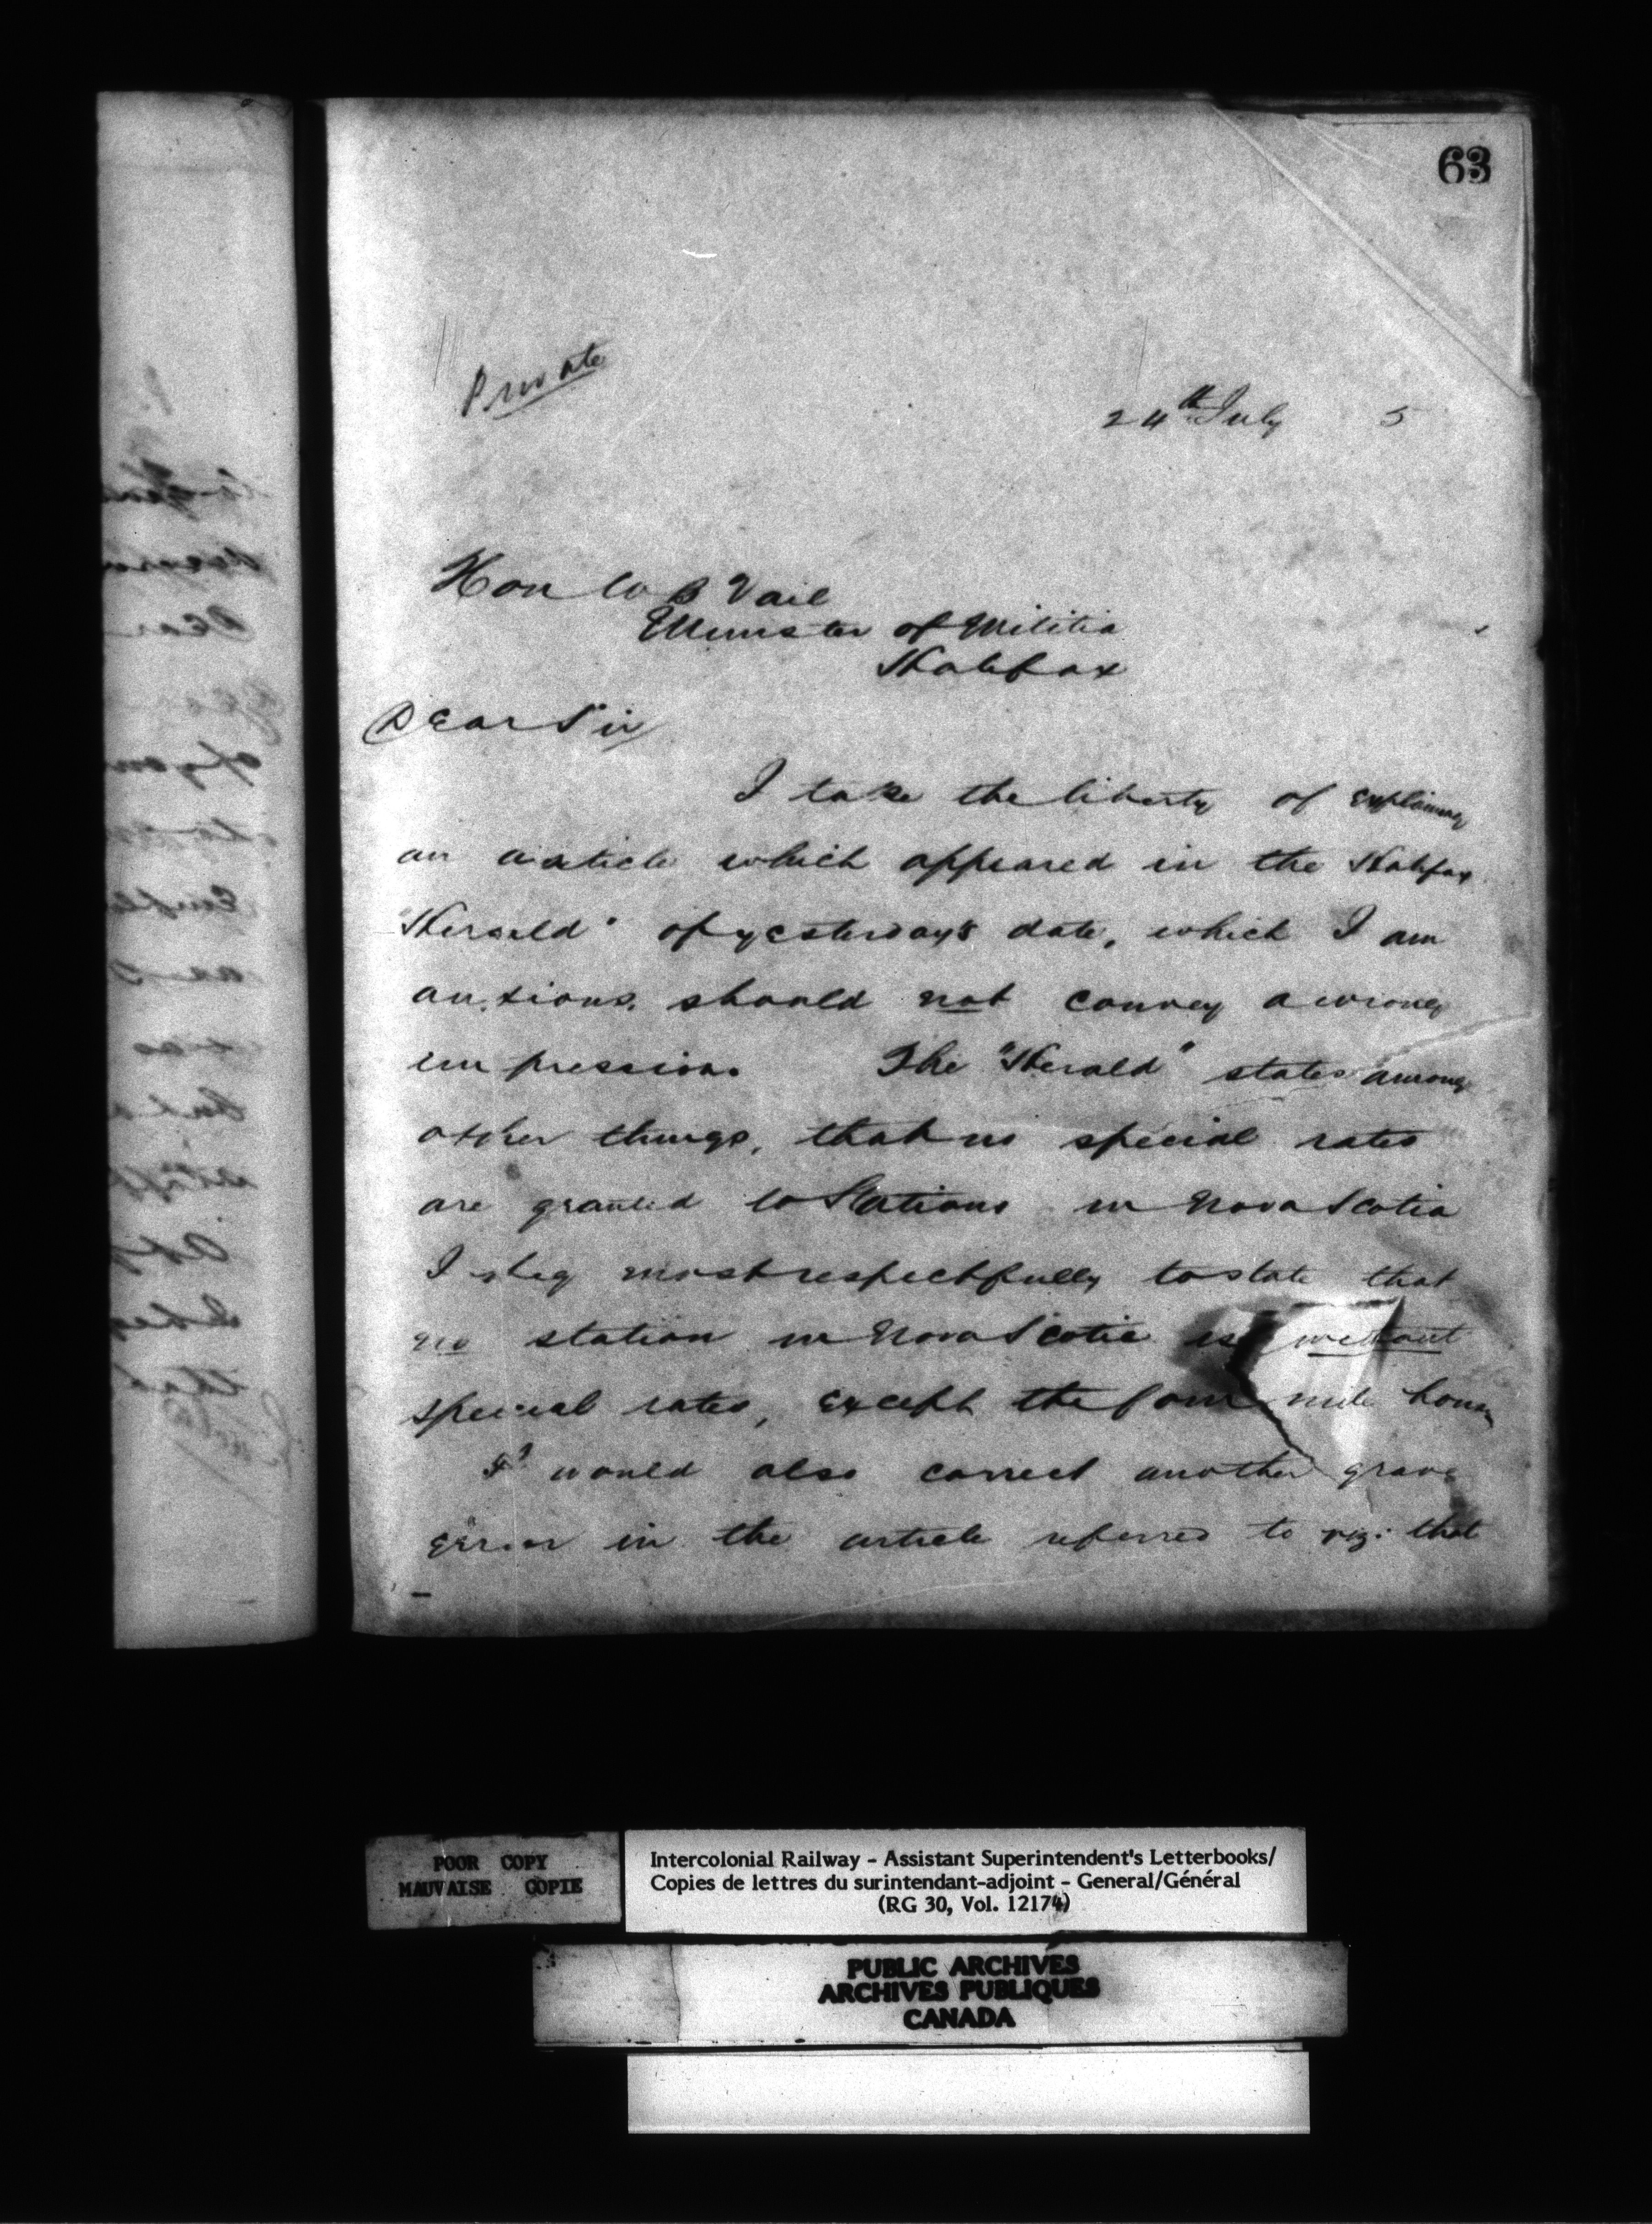 63
Private
24th July 5
Hon W B Vail
Minister of Militia
Halifax
Dear Sir
I take the liberty of explaining
an article which appeared in the Halifax
"Herald" of yesterdays date, which I am
anxious, should not convey a wrong
impression. The "Herald" states among
other things, that no special rates
are granted to Stations in Nova Scotia
I beg most respectfully to state that
no station in Nova Scotia is without
special rates, except the four mile house
I would also correct another grave
error in the article referred to viz: that
POOR COPY
MAUVAISE COPIE
Intercolonial Railway - Assistant Superintendent's Letterbooks/
Copies de lettres du surintendant-adjoint - General/Général
(RG 30, Vol. 12174)
PUBLIC ARCHIVES
ARCHIVES PUBLIQUES
CANADA